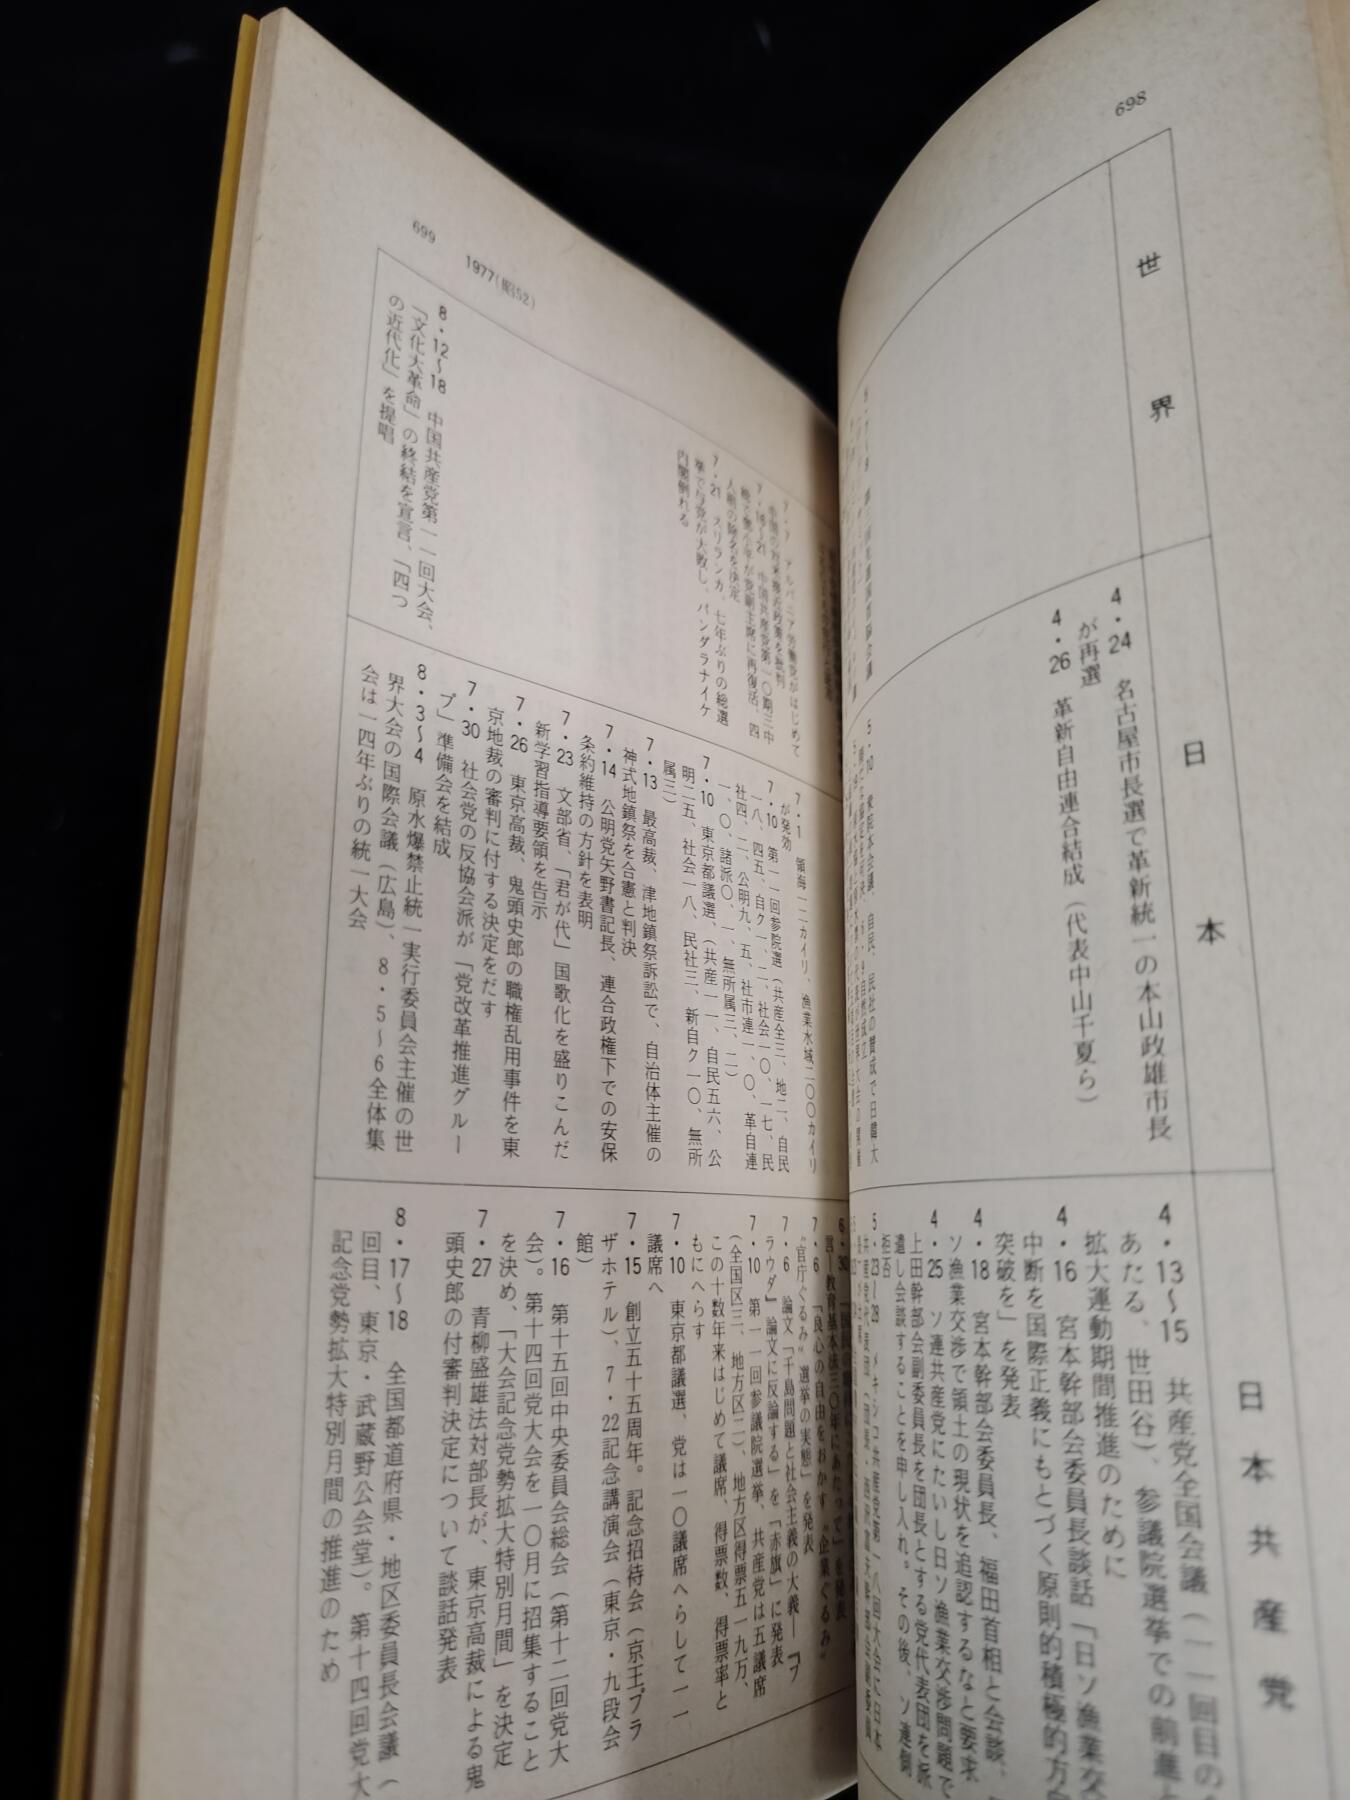 698
世界
日本
4・24 名古屋市長選で革新統一の本山政雄市長
が再選
4・26 革新自由連合結成（代表中山千夏ら）
5・10 衆院本会議、自民、民社の賛成で日韓大
日本共産党
4・13〜15 共産党全国会議（一一回目の
あたる、世田谷）、参議院選挙での前進と
拡大運動期間推進のために
4・16 宮本幹部会委員長談話「日ソ漁業交
中断を国際正義にもとづく原則的積極的方
突破を」を発表
4・18 宮本幹部会委員長、福田首相と会談、
ソ漁業交渉で領土の現状を追認するなと要求
4・25 ソ連共産党にたいし日ソ漁業交渉問題で
上田幹部会副委員長を団長とする党代表団を派
遣し会談することを申し入れ。その後、ソ連側
拒否
5・23〜29 メキシコ共産党第一八回大会に日本
699
1977（昭52）
7・7 アルバニア労働党がはじめて
中国の対米接近政策を批判
7・16〜21 中国共産党第一〇期三中
総で鄧小平が党副主席に再復活、四
人組の除名を決定
7・21 スリランカ、七年ぶりの総選
挙で与党が大敗し、バンダラナイケ
内閣倒れる
8・12〜18 中国共産党第一一回大会、
「文化大革命」の終結を宣言、「四つ
の近代化」を提唱
7・1 領海一二カイリ、漁業水域二〇〇カイリ
が発効
7・10 第一一回参院選（共産全三、地二、自民
一八、四五、自ク一、二、社会一〇、一七、民
社四、二、公明九、五、社市連一、〇、革自連
一、〇、諸派〇、一、無所属三、二）
7・10 東京都議選、（共産一一、自民五六、公
明二五、社会一八、民社三、新自ク一〇、無所
属三）
7・13 最高裁、津地鎮祭訴訟で、自治体主催の
神式地鎮祭を合憲と判決
7・14 公明党矢野書記長、連合政権下での安保
条約維持の方針を表明
7・23 文部省、「君が代」国歌化を盛りこんだ
新学習指導要領を告示
7・26 東京高裁、鬼頭史郎の職権乱用事件を東
京地裁の審判に付する決定をだす
7・30 社会党の反協会派が「党改革推進グルー
プ」準備会を結成
8・3〜4 原水爆禁止統一実行委員会主催の世
界大会の国際会議（広島）、8・5〜6全体集
会は一四年ぶりの統一大会
言―教育基本法三〇年にあたって」を発表
7・6 「良心の自由をおかす“企業ぐるみ”
“官庁ぐるみ”選挙の実態」を発表
7・6 論文「千島問題と社会主義の大義―『プ
ラウダ』論文に反論する」を「赤旗」に発表
7・10 第一一回参議院選挙、共産党は五議席
（全国区三、地方区二）、地方区得票五一九万、
この十数年来はじめて議席、得票数、得票率と
もにへらす
7・10 東京都議選、党は一〇議席へらして一一
議席へ
7・15 創立五十五周年。記念招待会（京王プラ
ザホテル）、7・22記念講演会（東京・九段会
館）
7・16 第十五回中央委員会総会（第十二回党大
会）。第十四回党大会を一〇月に招集すること
を決め、「大会記念党勢拡大特別月間」を決定
7・27 青柳盛雄法対部長が、東京高裁による鬼
頭史郎の付審判決定について談話発表
8・17〜18 全国都道府県・地区委員長会議（
回目、東京・武蔵野公会堂）。第十四回党大
記念党勢拡大特別月間の推進のため